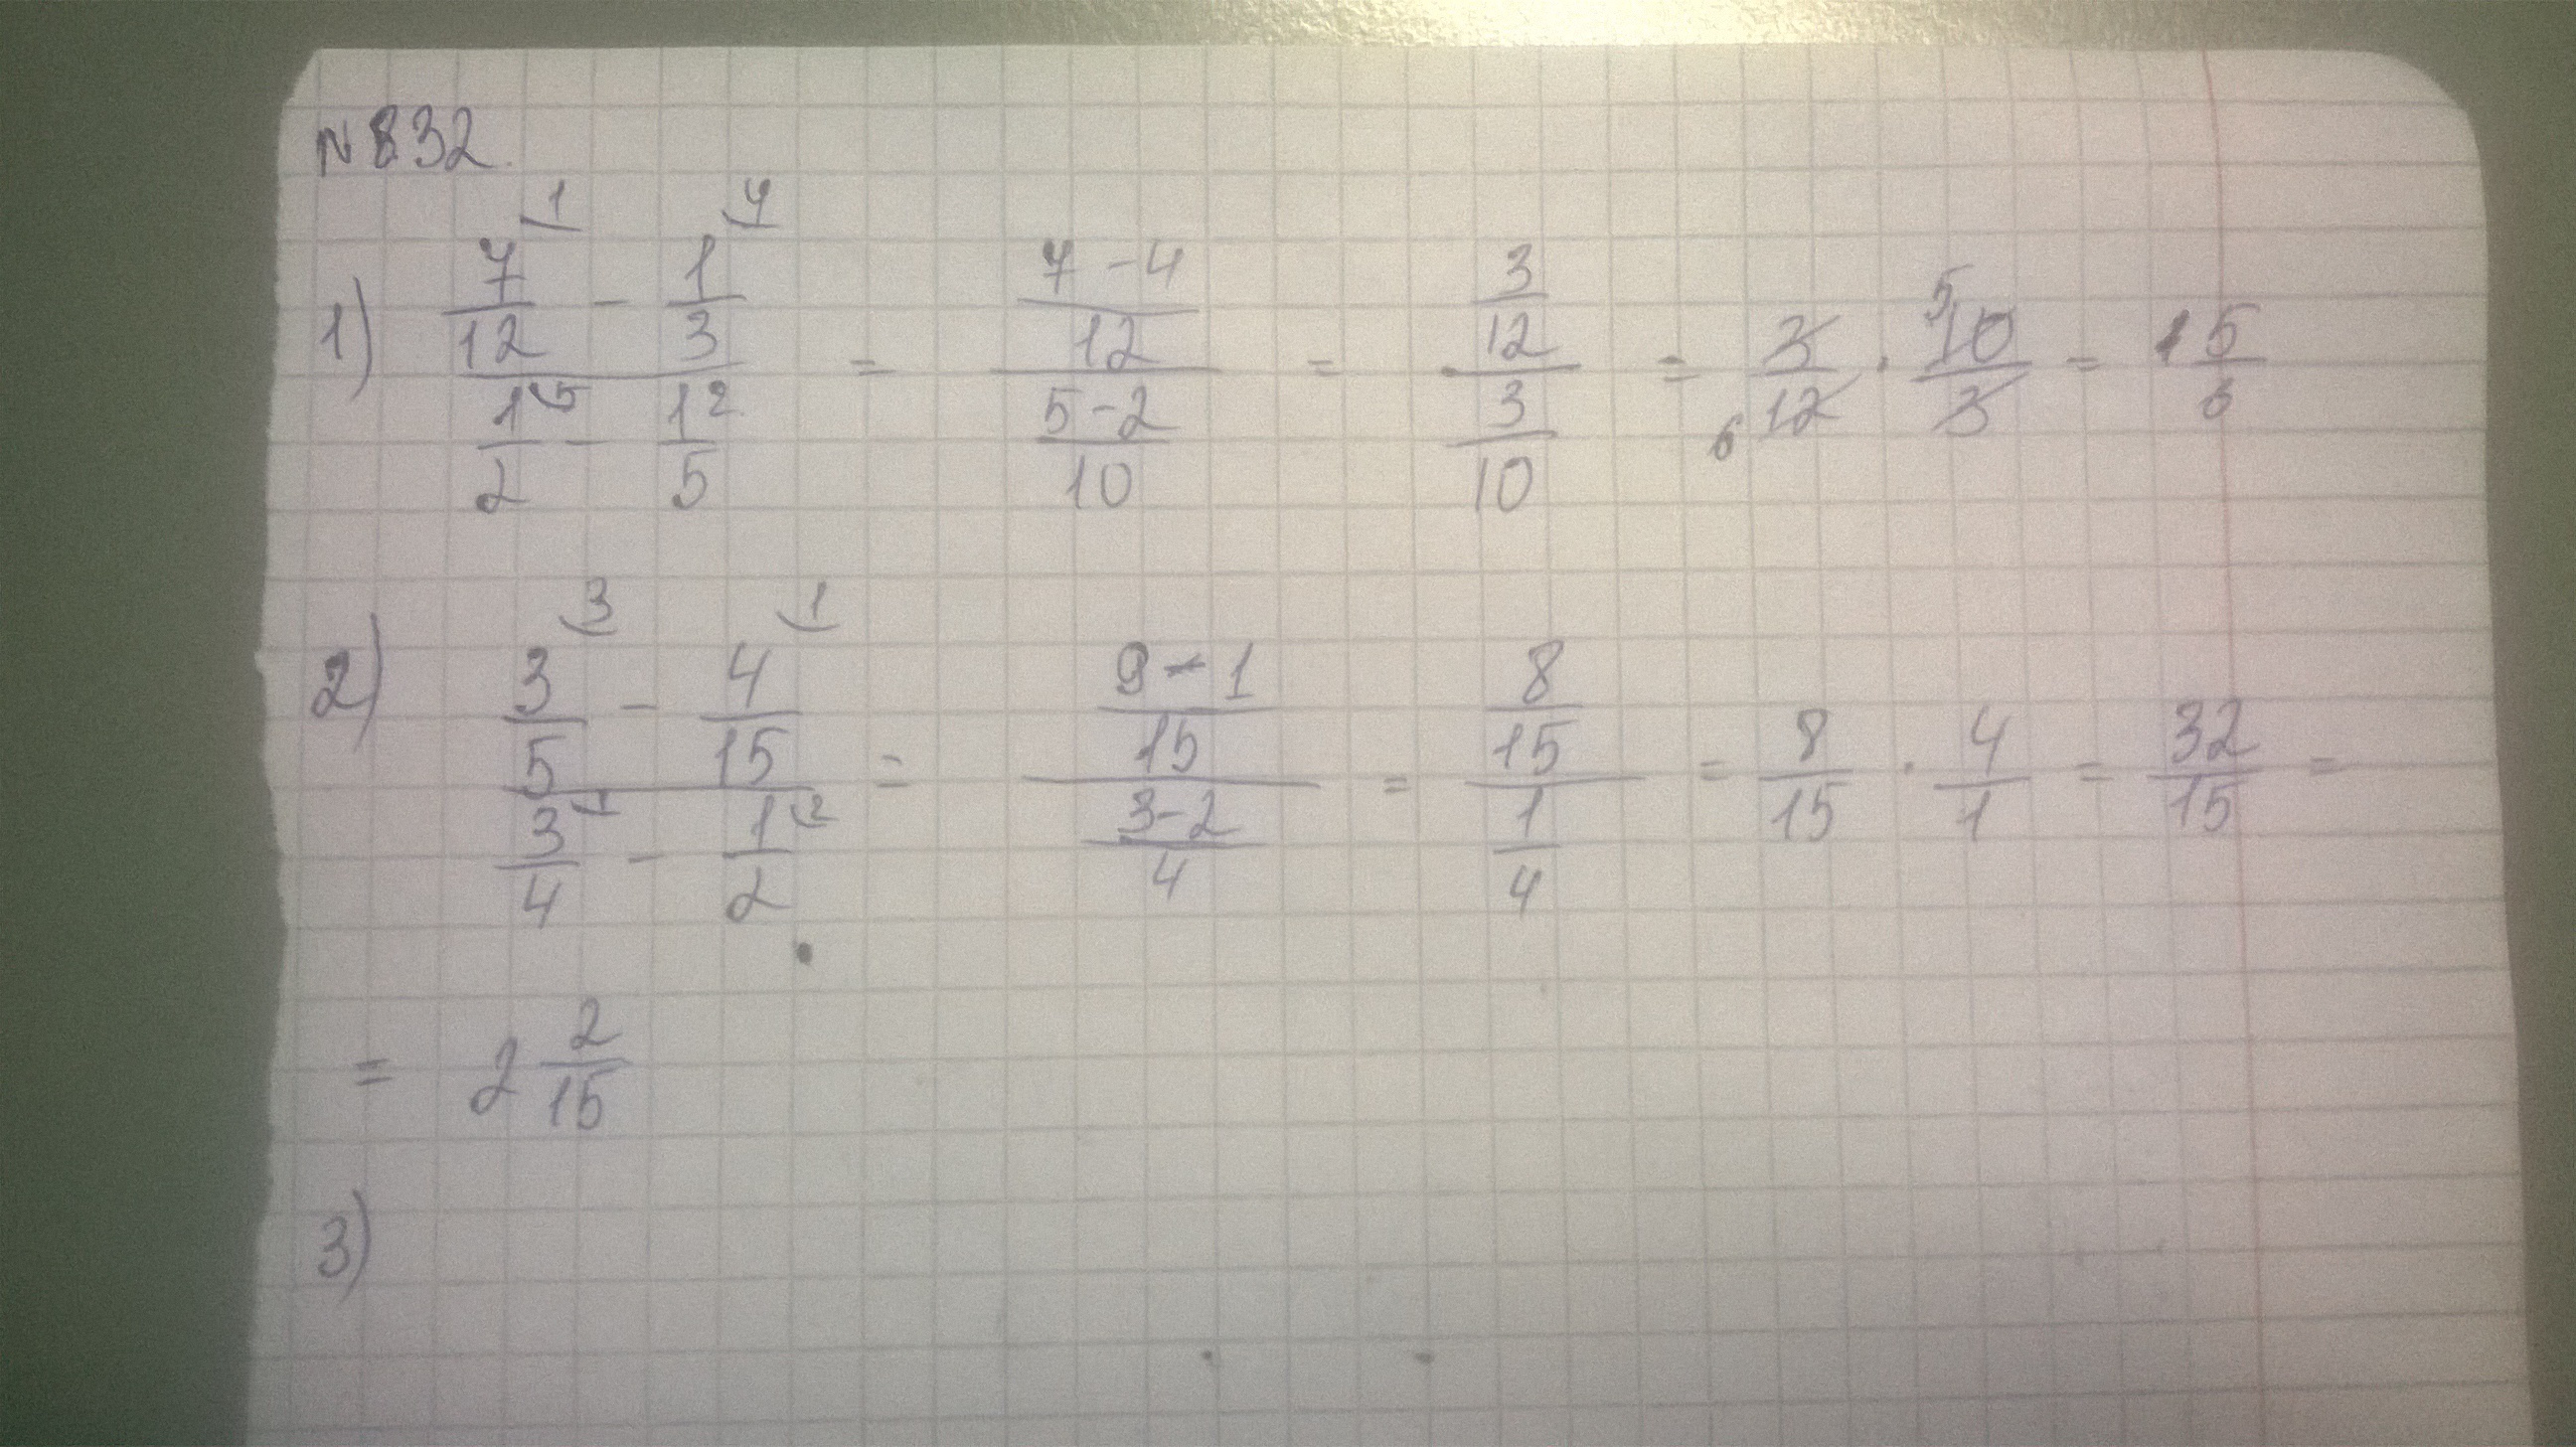 N 832.
1) (7/12 ⁽¹ - 1/3 ⁽⁴) / (1/2 ⁽⁵ - 1/5 ²) = ((7-4)/12) / ((5-2)/10) = (3/12) / (3/10) = 3/12 6 · 5 10/3 = 15/6
2) (3/5 ⁽³ - 4/15 ⁽¹) / (3/4 ⁽¹ - 1/2 ⁽²) = ((9-1)/15) / ((3-2)/4) = (8/15) / (1/4) = 8/15 · 4/1 = 32/15 =
= 2 2/15
3)